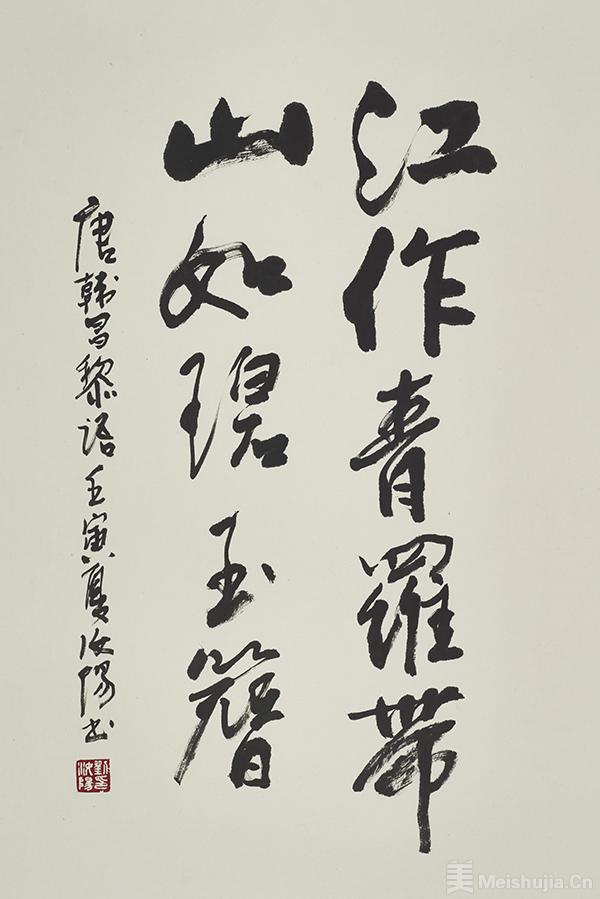 江作青羅帶
山如碧玉簪
唐韓昌黎語壬寅夏汝陽書
劉汝陽
美 Meishujia.Cn